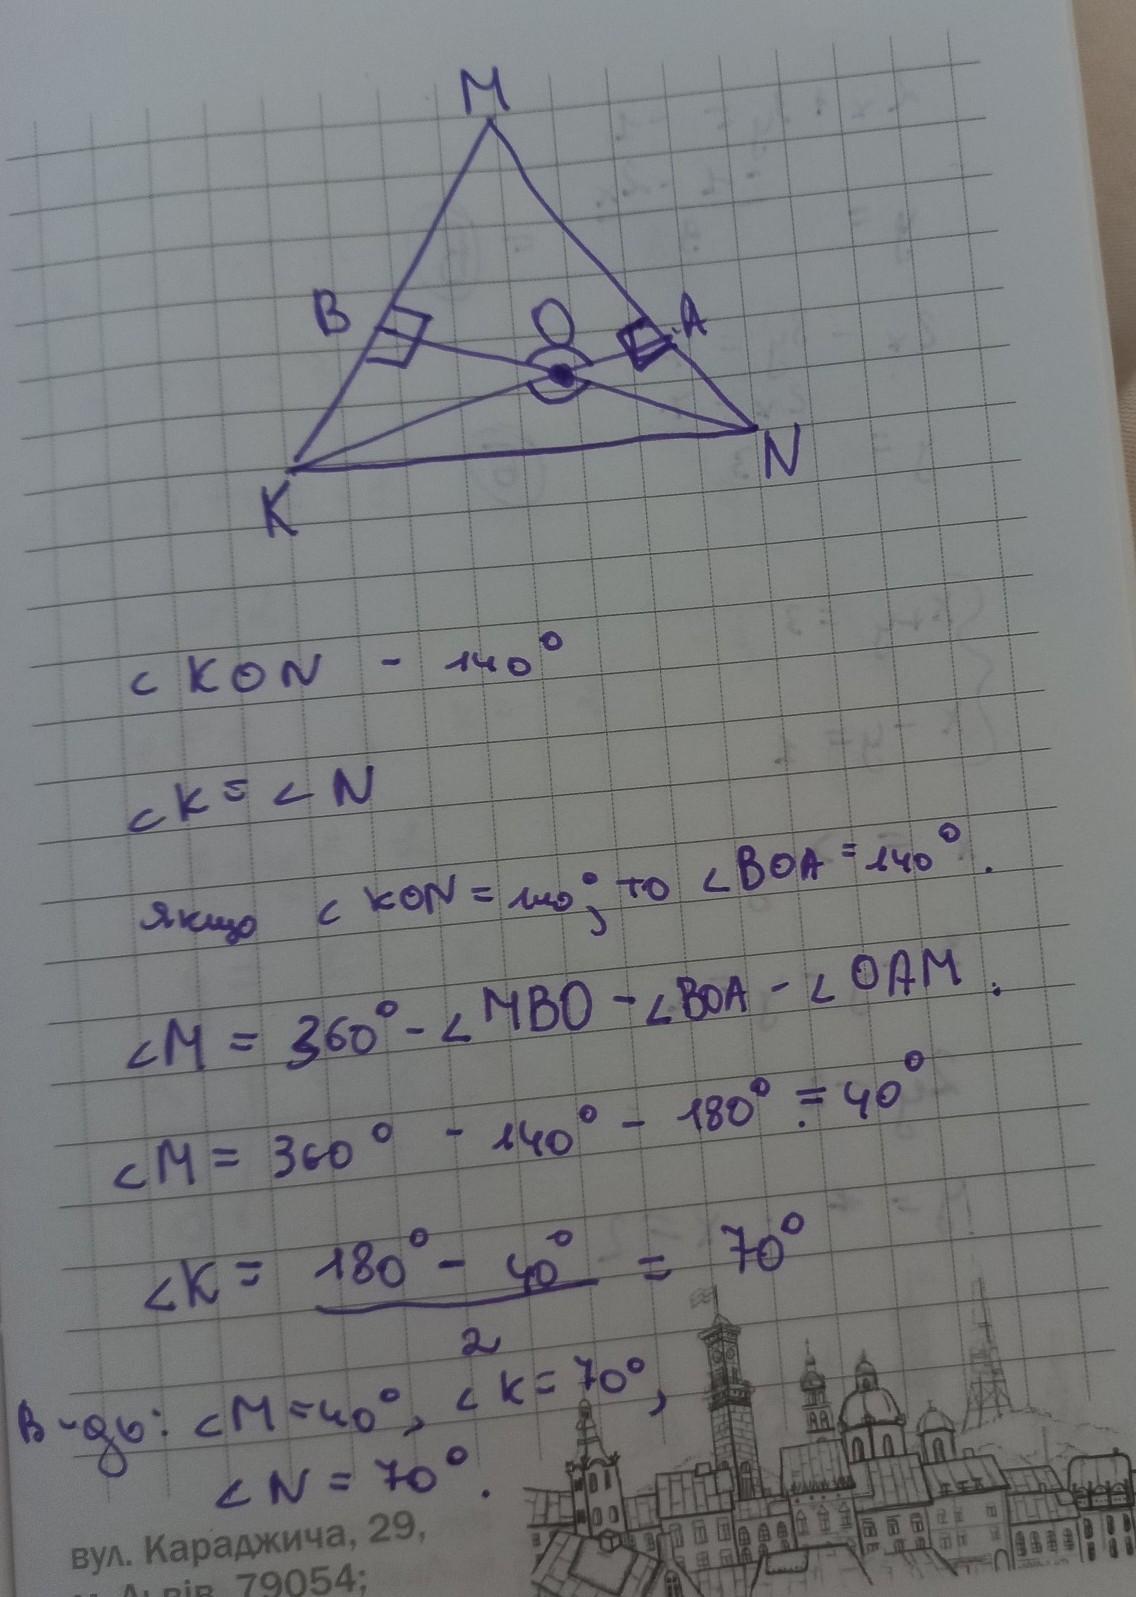 M
B
O
A
K
N
∠KON - 140°
∠K = ∠N
Якщо ∠KON = 140°, то ∠BOA = 140°.
∠M = 360° - ∠MBO - ∠BOA - ∠OAM.
∠M = 360° - 140° - 180° = 40°
∠K = 180° - 40° = 70°
2
В-дь: ∠M = 40°, ∠K = 70°,
∠N = 70°.
вул. Караджича, 29,
м. Львів, 79054;